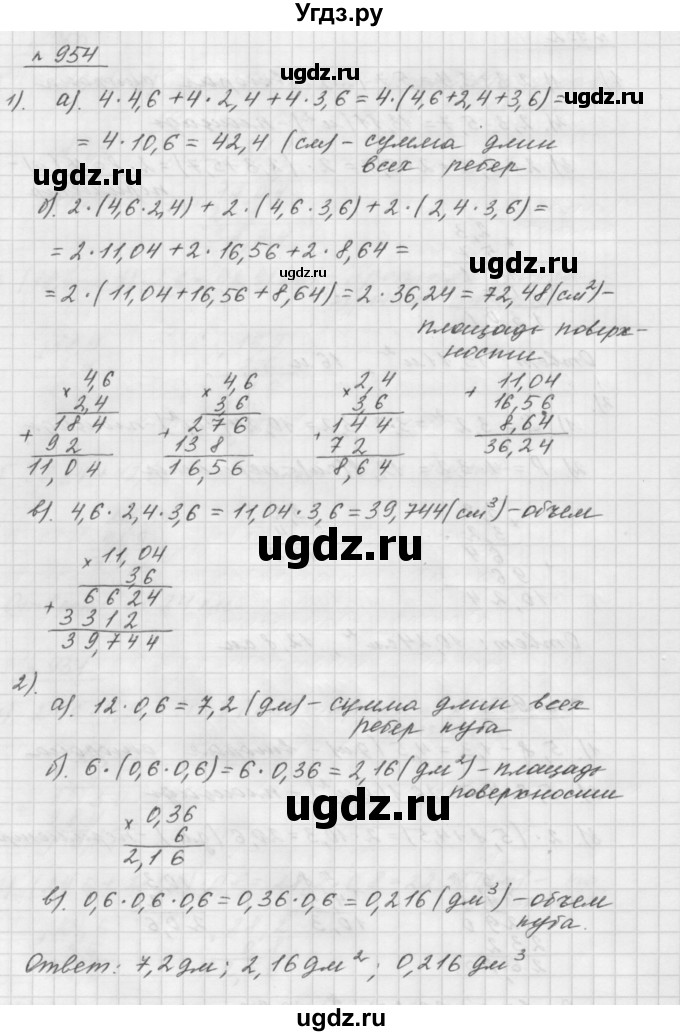 Угдз.ру
n 954
1). а). 4·4,6 + 4·2,4 + 4·3,6 = 4·(4,6+2,4+3,6) =
= 4·10,6 = 42,4 (см) - сумма длин
всех ребер
ugdz.ru
б). 2·(4,6·2,4) + 2·(4,6·3,6) + 2·(2,4·3,6) =
= 2·11,04 + 2·16,56 + 2·8,64 =
ugdz.ru
ugdz.ru
= 2·(11,04+16,56+8,64) = 2·36,24 = 72,48 (см²) -
площадь поверх-
ugdz.ru
ности
× 4,6
2,4
+ 184
92
11,04
× 4,6
3,6
+ 276
138
16,56
× 2,4
3,6
+ 144
72
8,64
+ 11,04
16,56
8,64
36,24
в). 4,6·2,4·3,6 = 11,04·3,6 = 39,744 (см³) - объем
ugdz.ru
× 11,04
3,6
+ 6624
3312
39,744
2).
а). 12·0,6 = 7,2 (дм) - сумма длин всех
ребер куба
б). 6·(0,6·0,6) = 6·0,36 = 2,16 (дм²) - площадь
поверхности
ugdz.ru
× 0,36
6
2,16
в). 0,6·0,6·0,6 = 0,36·0,6 = 0,216 (дм³) - объем
куба.
Ответ: 7,2 дм; 2,16 дм²; 0,216 дм³
ugdz.ru
ugdz.ru